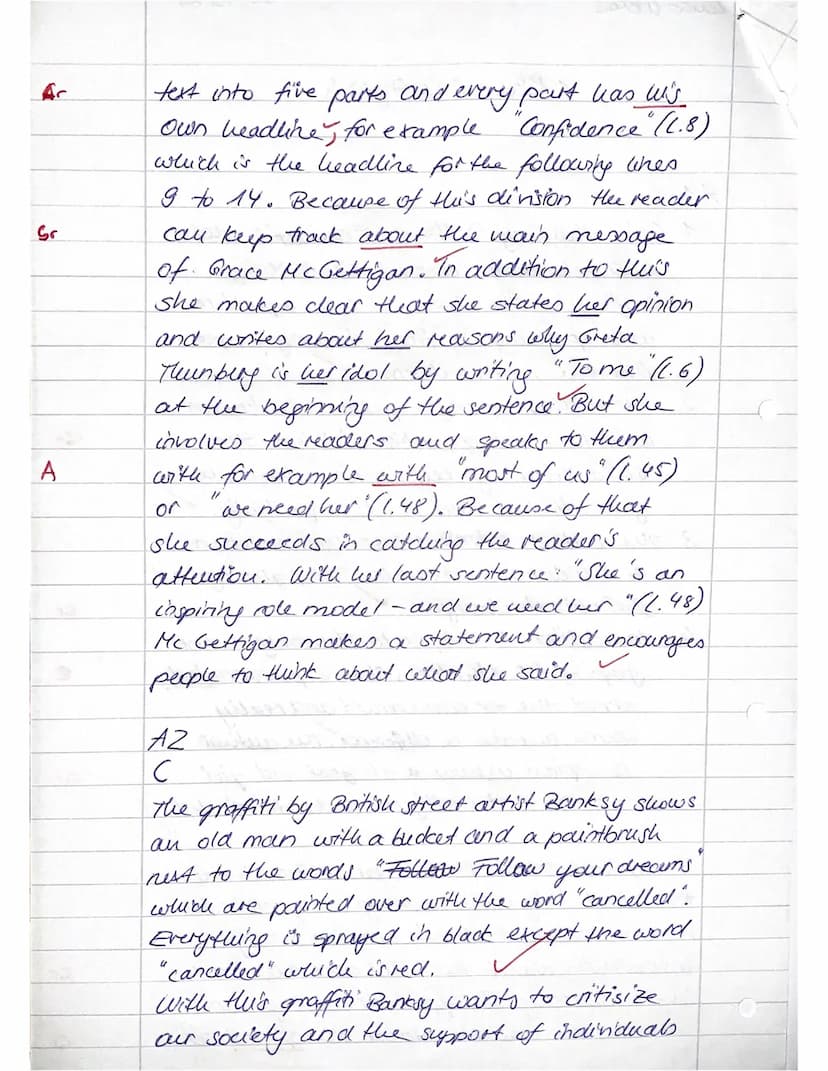 Ar
text into five parts and every part has his
own headline, for example "Confidence" (l.8)
which is the headline for the following lines
9 to 14. Because of this division the reader
Gr
can keep track about the main message
of Grace McGettigan. In addition to this
she makes clear that she states her opinion
and writes about her reasons why Greta
Thunberg is her idol by writing "To me" (l.6)
at the beginning of the sentence. But she
involves the readers and speaks to them
A
with for example with "most of us" (l. 45)
or "we need her" (l.48). Because of that
she succeeds in catching the reader's
attention. With her last sentence: "She's an
inspiring role model – and we need her" (l.48)
Mc Gettigan makes a statement and encourages
people to think about what she said.
A2
C
The graffiti by British street artist Banksy shows
an old man with a bucket and a paintbrush
next to the words "Follow Follow your dreams"
which are painted over with the word "cancelled".
Everything is sprayed in black except the word
"cancelled" which is red.
With this graffiti Banksy wants to critisize
our society and the support of individuals